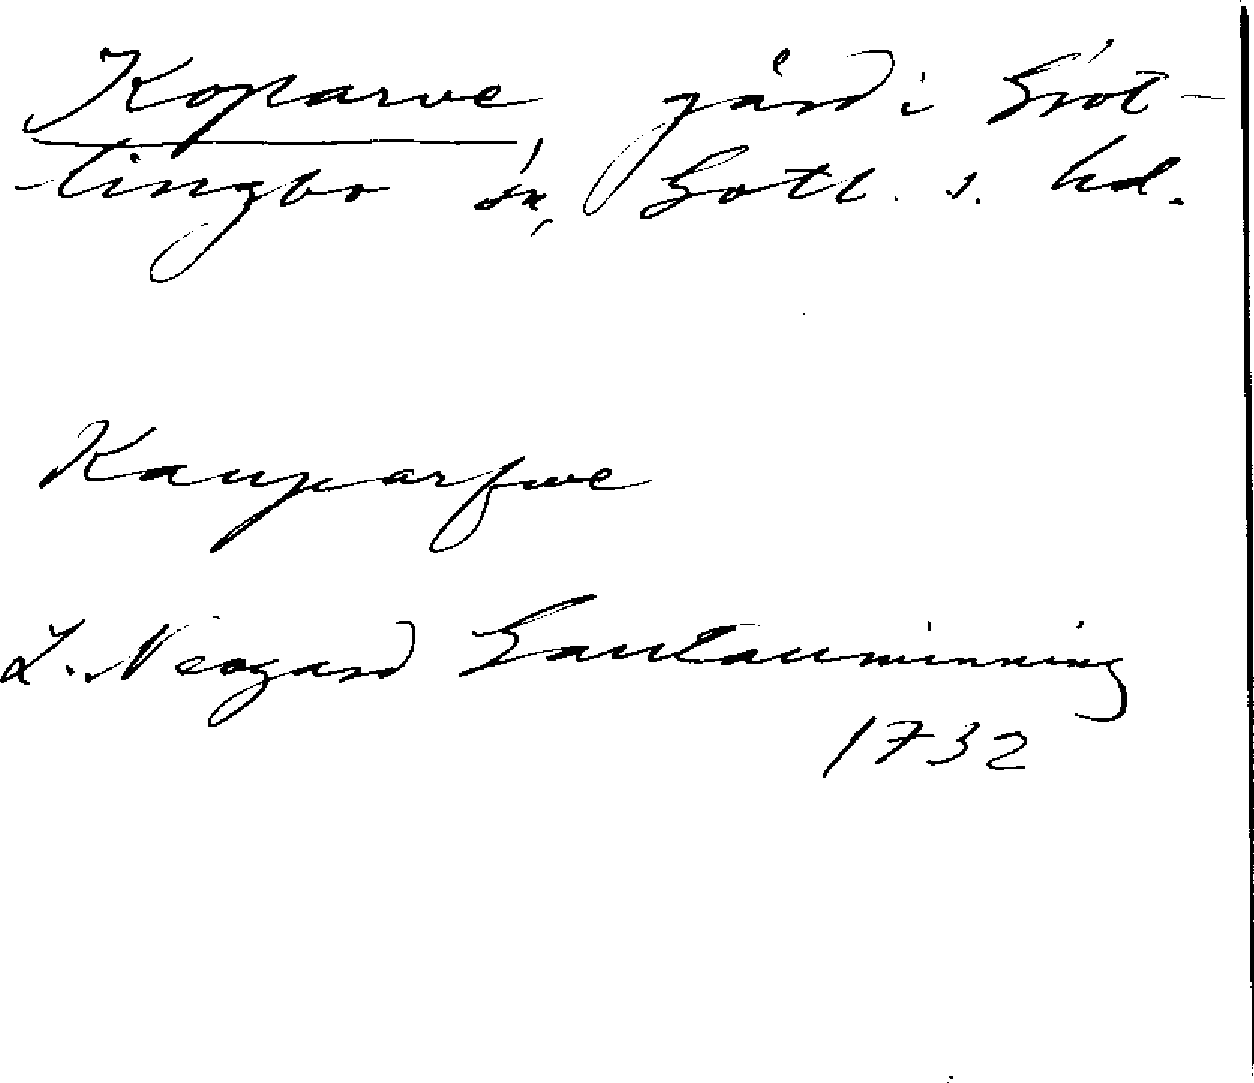 Koparve gård i Gröt-
lingbo sn, Gotl. s. hd.
Kauparfwe
L. Neogard Gautauminning
1732